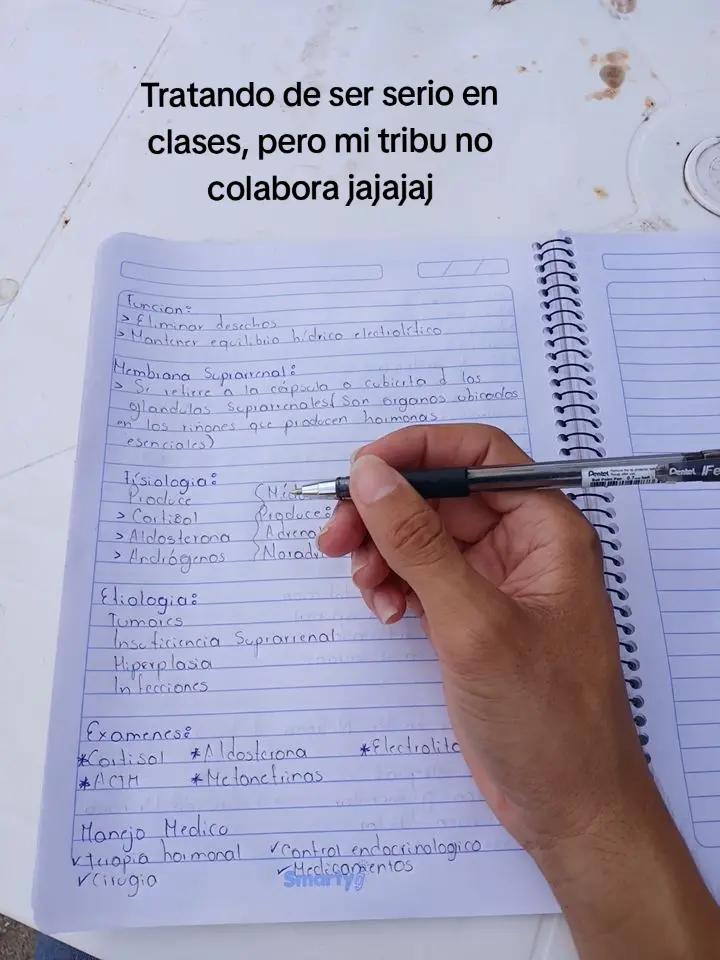 Tratando de ser serio en
clases, pero mi tribu no
colabora jajajaj
Funcion:
> Eliminar desechos
> Mantener equilibrio hídrico electrolítico
Membrana Suprarrenal:
> Se refiere a la cápsula o cubierta d las
glandulas suprarrenales (Son organos ubicados
en los riñones que producen hormonas
esenciales)
Fisiologia:
Produce
Produce:
> Cortisol
> Aldosterona
> Andrógenos
Etiologia:
Tumores
Insuficiencia Suprarrenal
Hiperplasia
Infecciones
Examenes:
*Cortisol *Aldosterona
*ACTH *Metanefrinas
Manejo Medico
✓terapia hormonal ✓Control endocrinologico
✓Cirugia ✓Medicamentos
Smarty
Pentel
Pentel